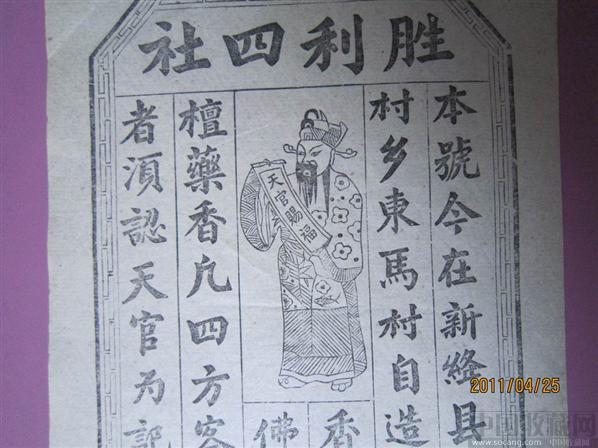 胜利四社
本號今在新絳县
村乡東馬村自造
天官賜福
香
佛
檀藥香凢四方客
者湏認天官为記
2011/04/25
中国收藏网
www.socang.com 中国收藏网